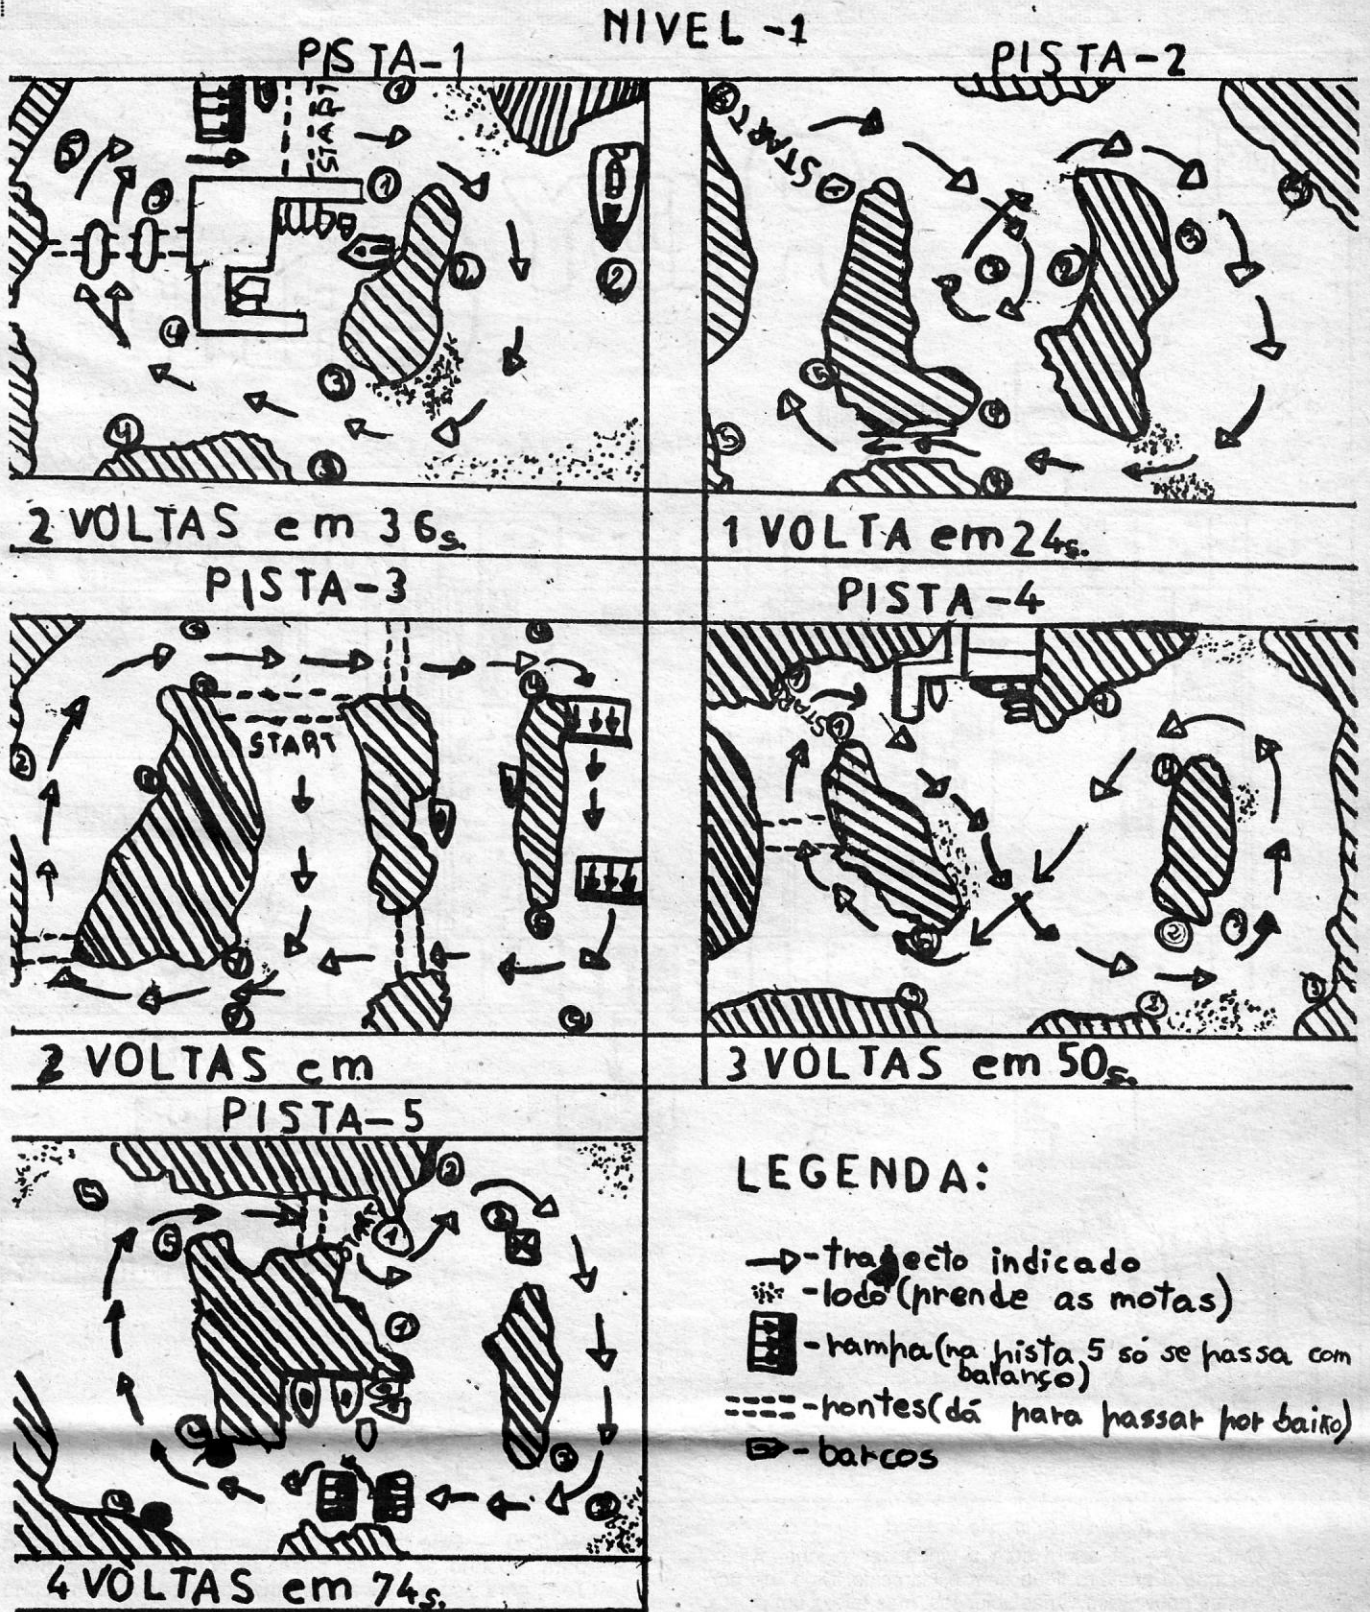 NIVEL -1
PISTA-1
PISTA-2
START
START
2 VOLTAS em 36s.
1 VOLTA em 24s.
PISTA-3
PISTA-4
START
START
2 VOLTAS em
3 VOLTAS em 50s.
PISTA-5
4 VOLTAS em 74s.
LEGENDA:
-trajecto indicado
-lodo (prende as motas)
-rampa (na pista 5 só se passa com
balanço)
-pontes (dá para passar por baixo)
-barcos